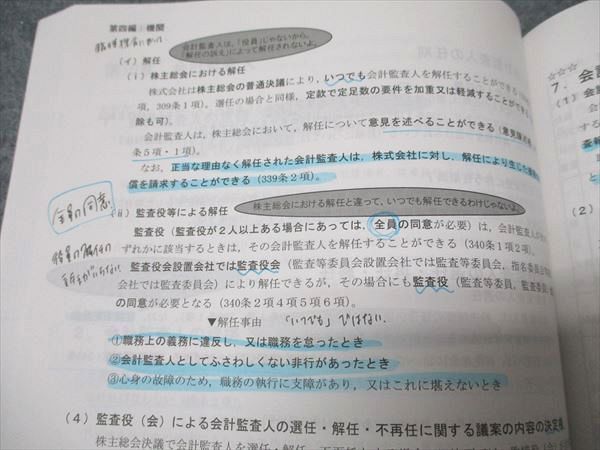 第四編：機関
会計監査人は、「役員」じゃないから、
「解任の訴え」によって解任されないよ。
(イ) 解任
(ⅰ) 株主総会における解任
株式会社は株主総会の普通決議により、いつでも会計監査人を解任することができる
項，309条1項）。選任の場合と同様，定款で定足数の要件を加重又は軽減することができ
除も可）。
会計監査人は，株主総会において，解任について意見を述べることができる（意見陳述
条5項・1項）。
なお，正当な理由なく解任された会計監査人は，株式会社に対し，解任により生じた損害
償を請求することができる（339条2項）。
株主総会における解任と違って、いつでも解任できるわけじゃないよ。
全員の同意
(ⅱ) 監査役等による解任
監査役（監査役が2人以上ある場合にあっては，全員の同意が必要）は，会計監査人が
ずれかに該当するときは，その会計監査人を解任することができる（340条1項2項）。
監査役会設置会社では監査役会（監査等委員会設置会社では監査等委員会，指名委員会等
会社では監査委員会）により解任できるが，その場合にも監査役（監査等委員，監査委員
の同意が必要となる（340条2項4項5項6項）。
▼解任事由 「いつでも」ではない.
①職務上の義務に違反し，又は職務を怠ったとき
②会計監査人としてふさわしくない非行があったとき
③心身の故障のため，職務の執行に支障があり，又はこれに堪えないとき
(4) 監査役（会）による会計監査人の選任・解任・不再任に関する議案の内容の決定権
株主総会決議で会計監査人を選任・解任
☆☆☆
7．会計
(1)
(2)